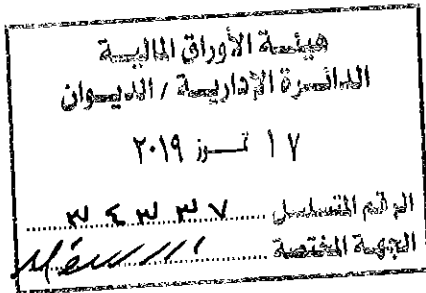 هيئة الأوراق المالية
الدائرة الإدارية / الديوان
١٧ تموز ٢٠١٩
الرقم المتسلسل ٣٤٣٣٧
الجهة المختصة